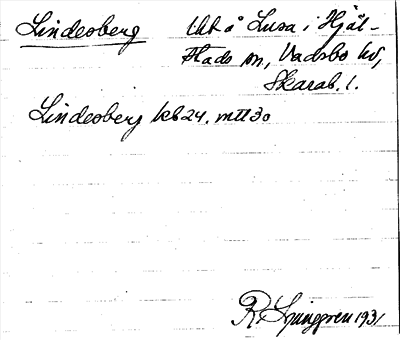 Lindesberg Utt å Lusa i Hjäl-
stads sn, Vadsbo hd,
Skarab. l.
Lindesberg kb 24. mtl 30
R. Ljunggren 1931